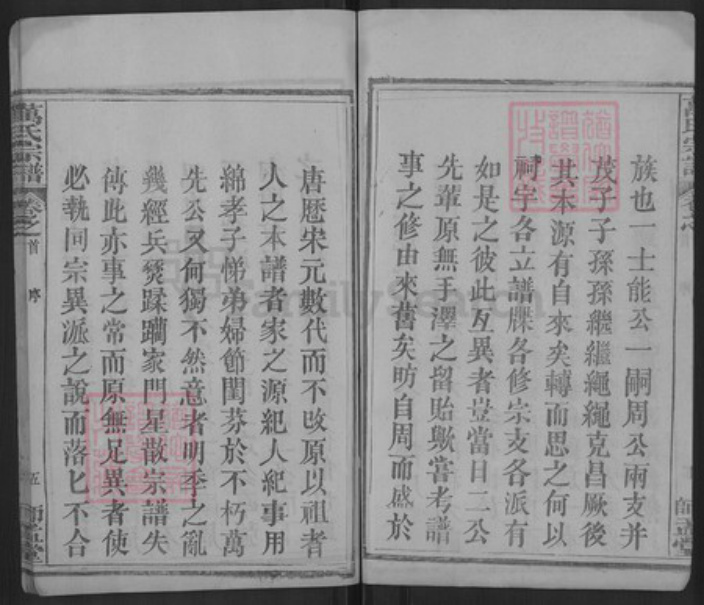 族也一士能公一嗣周公兩支并
茂子子孫孫繼繼繩繩克昌厥後
其本源有自來矣轉而思之何以
祠宇各立譜牒各修宗支各派有
如是之彼此互異者豈當日二公
先輩原無手澤之留貽歟嘗考譜
事之修由來舊矣昉自周而盛於
師孟堂
萬氏宗譜
卷之首
序
五
唐歷宋元數代而不改原以祖者
人之本譜者家之源紀人紀事用
綿孝子悌弟婦節閨芬於不朽萬
先公又何獨不然意者明季之亂
幾經兵燹蹂躪家門星散宗譜失
傳此亦事之常而原無足異者使
必執同宗異派之說而落匕不合
FamilySearch